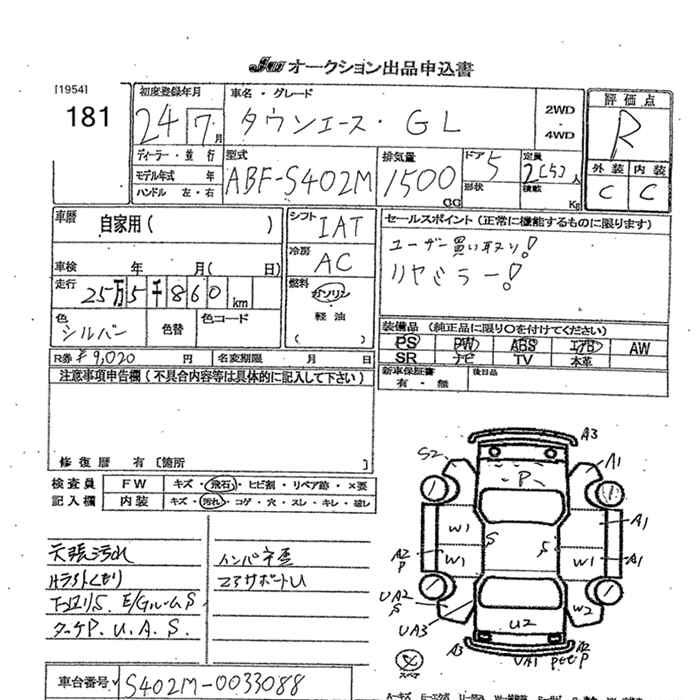 JU オークション出品申込書
[1954]
181
初度登録年月
24 7月
車名・グレード
タウンエース・GL
2WD
・
4WD
評価点
R
外装 内装
C C
ディーラー・並行
モデル年式 年
ハンドル 左・右
型式
ABF-S402M
排気量
1500
CC
ドア 5
形状
定員
2(5)人
積載
Kg
車歴 自家用( )
車検 年 月( 日)
走行 25万5千860km
色 シルバー
色替
色コード
シフト IAT
冷房 AC
燃料
ガソリン
・
軽油
( )
セールスポイント(正常に機能するものに限ります)
ユーザー買い取り!
リヤミラー!
装備品(純正品に限り○を付けてください)
PS PW ABS エアB AW
SR ナビ TV 本革
新車保証書
有・無
後日品
R券 ¥9,020 円
名変期限 月 日
注意事項申告欄(不具合内容等は具体的に記入して下さい)
修復歴 有〔箇所 〕
検査員
記入欄
FW キズ・飛石・ヒビ割・リペア跡・×要
内装 キズ・汚れ・コゲ・穴・スレ・キレ・破レ
天張汚れ
インパネ歪
コアサポートU
下回りS. E/GルームS
P. U. A. S.
車台番号 S402M-0033088
A3
S2
A1
P
W1
S
S
A1
A2
P
W1
W1
A1
UA2
S
UA3
W2
U2
A3
UA1
A2
P
スペア